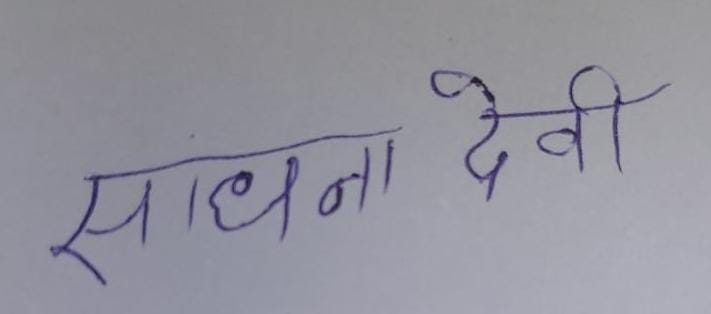 साधना देवी